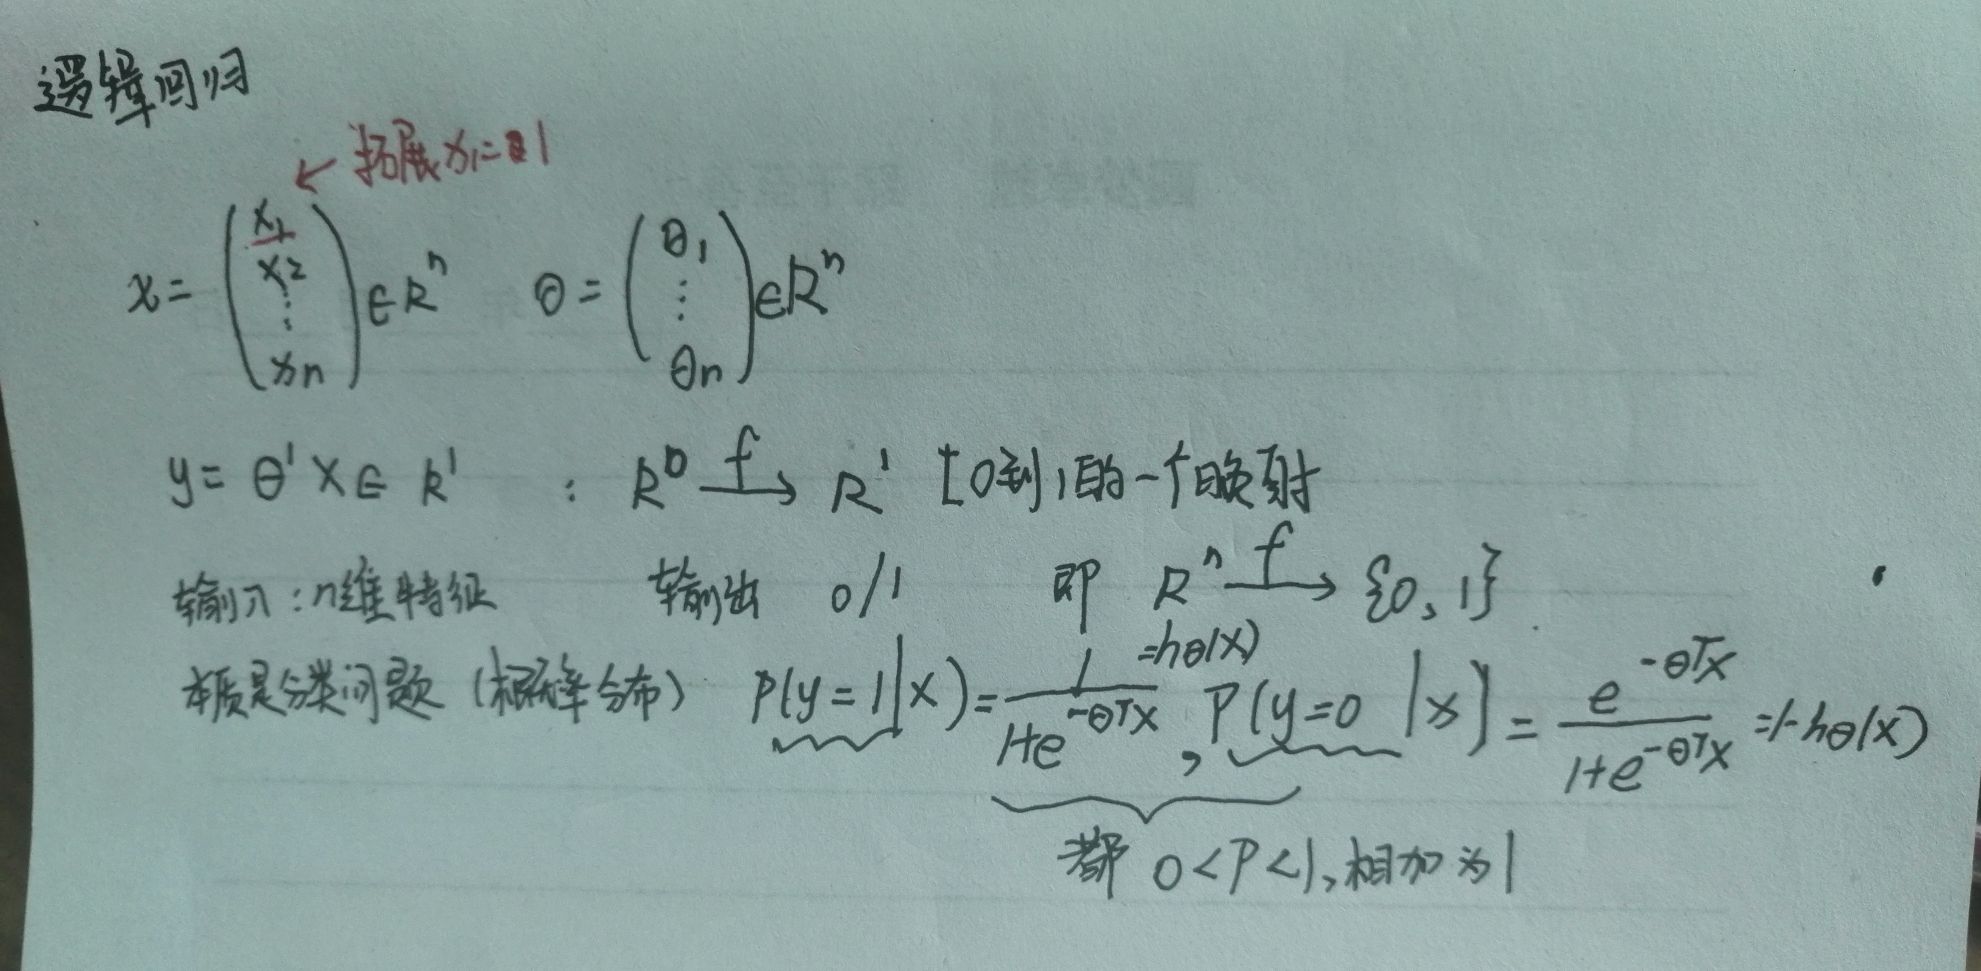 逻辑回归
← 拓展 x₁=1
x = (x₁ x₂ ⋮ xn) ∈ Rⁿ θ = (θ₁ ⋮ θn) ∈ Rⁿ
y = θ' x ∈ R¹ : R⁰ —f→ R¹ [0到1的一个映射
输入:n维特征 输出 0/1 即 Rⁿ —f→ {0, 1}
本质是分类问题 (概率分布) P(y=1|x) = 1/(1+e^(-θᵀx)) = hθ(x), P(y=0|x) = e^(-θᵀx)/(1+e^(-θᵀx)) = 1-hθ(x)
都 0<P<1,相加为1